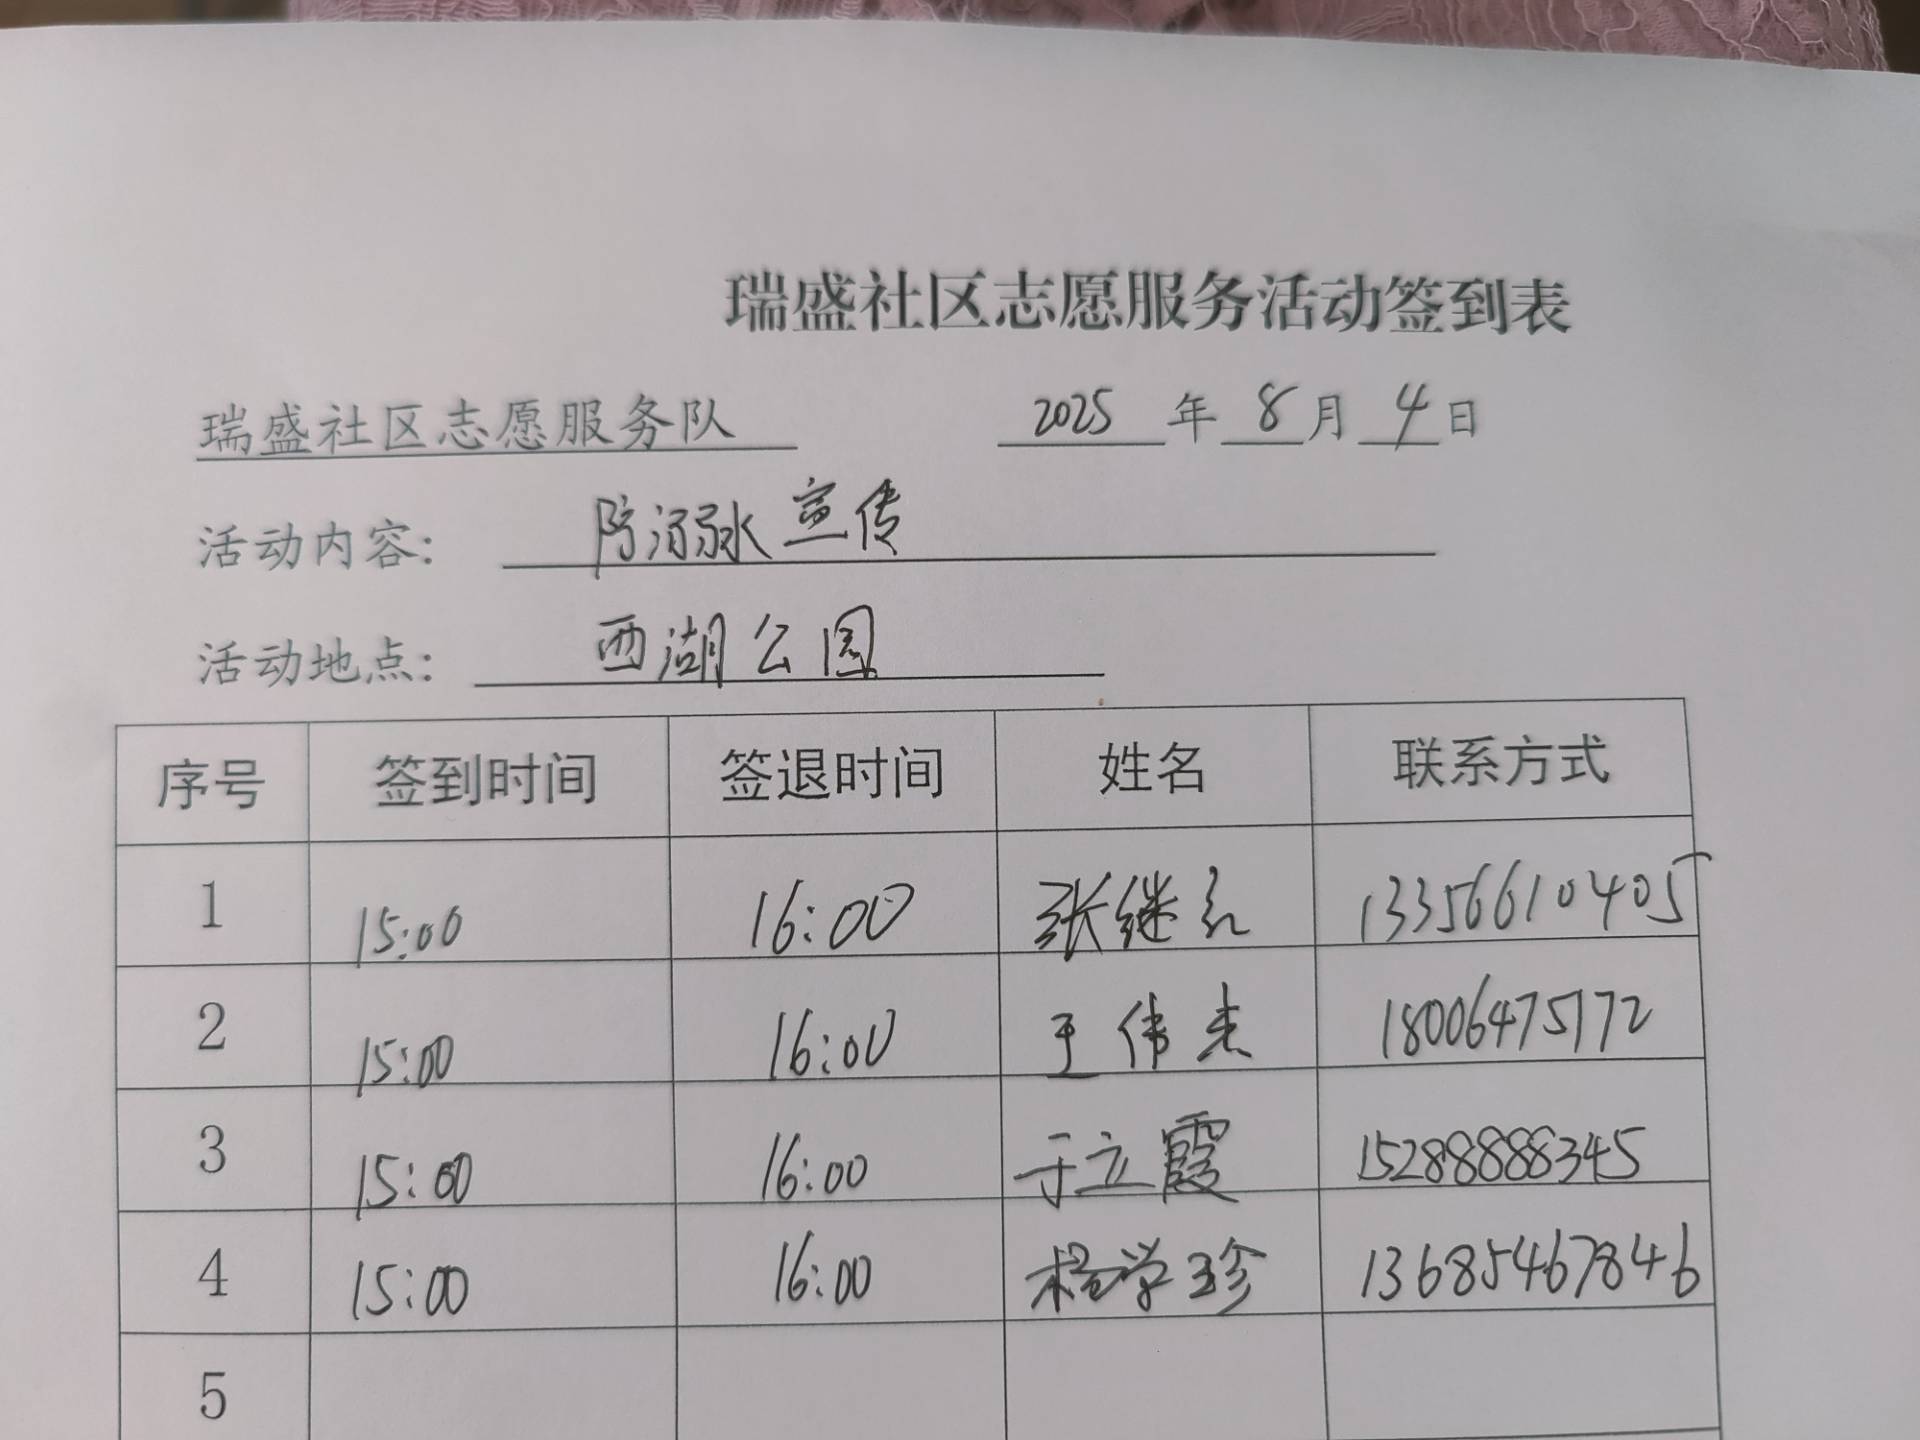 瑞盛社区志愿服务活动签到表
瑞盛社区志愿服务队 2025 年 8 月 4 日
活动内容: 防溺水宣传
活动地点: 西湖公园
序号 签到时间 签退时间 姓名 联系方式
1 15:00 16:00 张继 13356610405
2 15:00 16:00 王伟杰 18006475172
3 15:00 16:00 于立霞 15288888345
4 15:00 16:00 杨学珍 13685467846
5